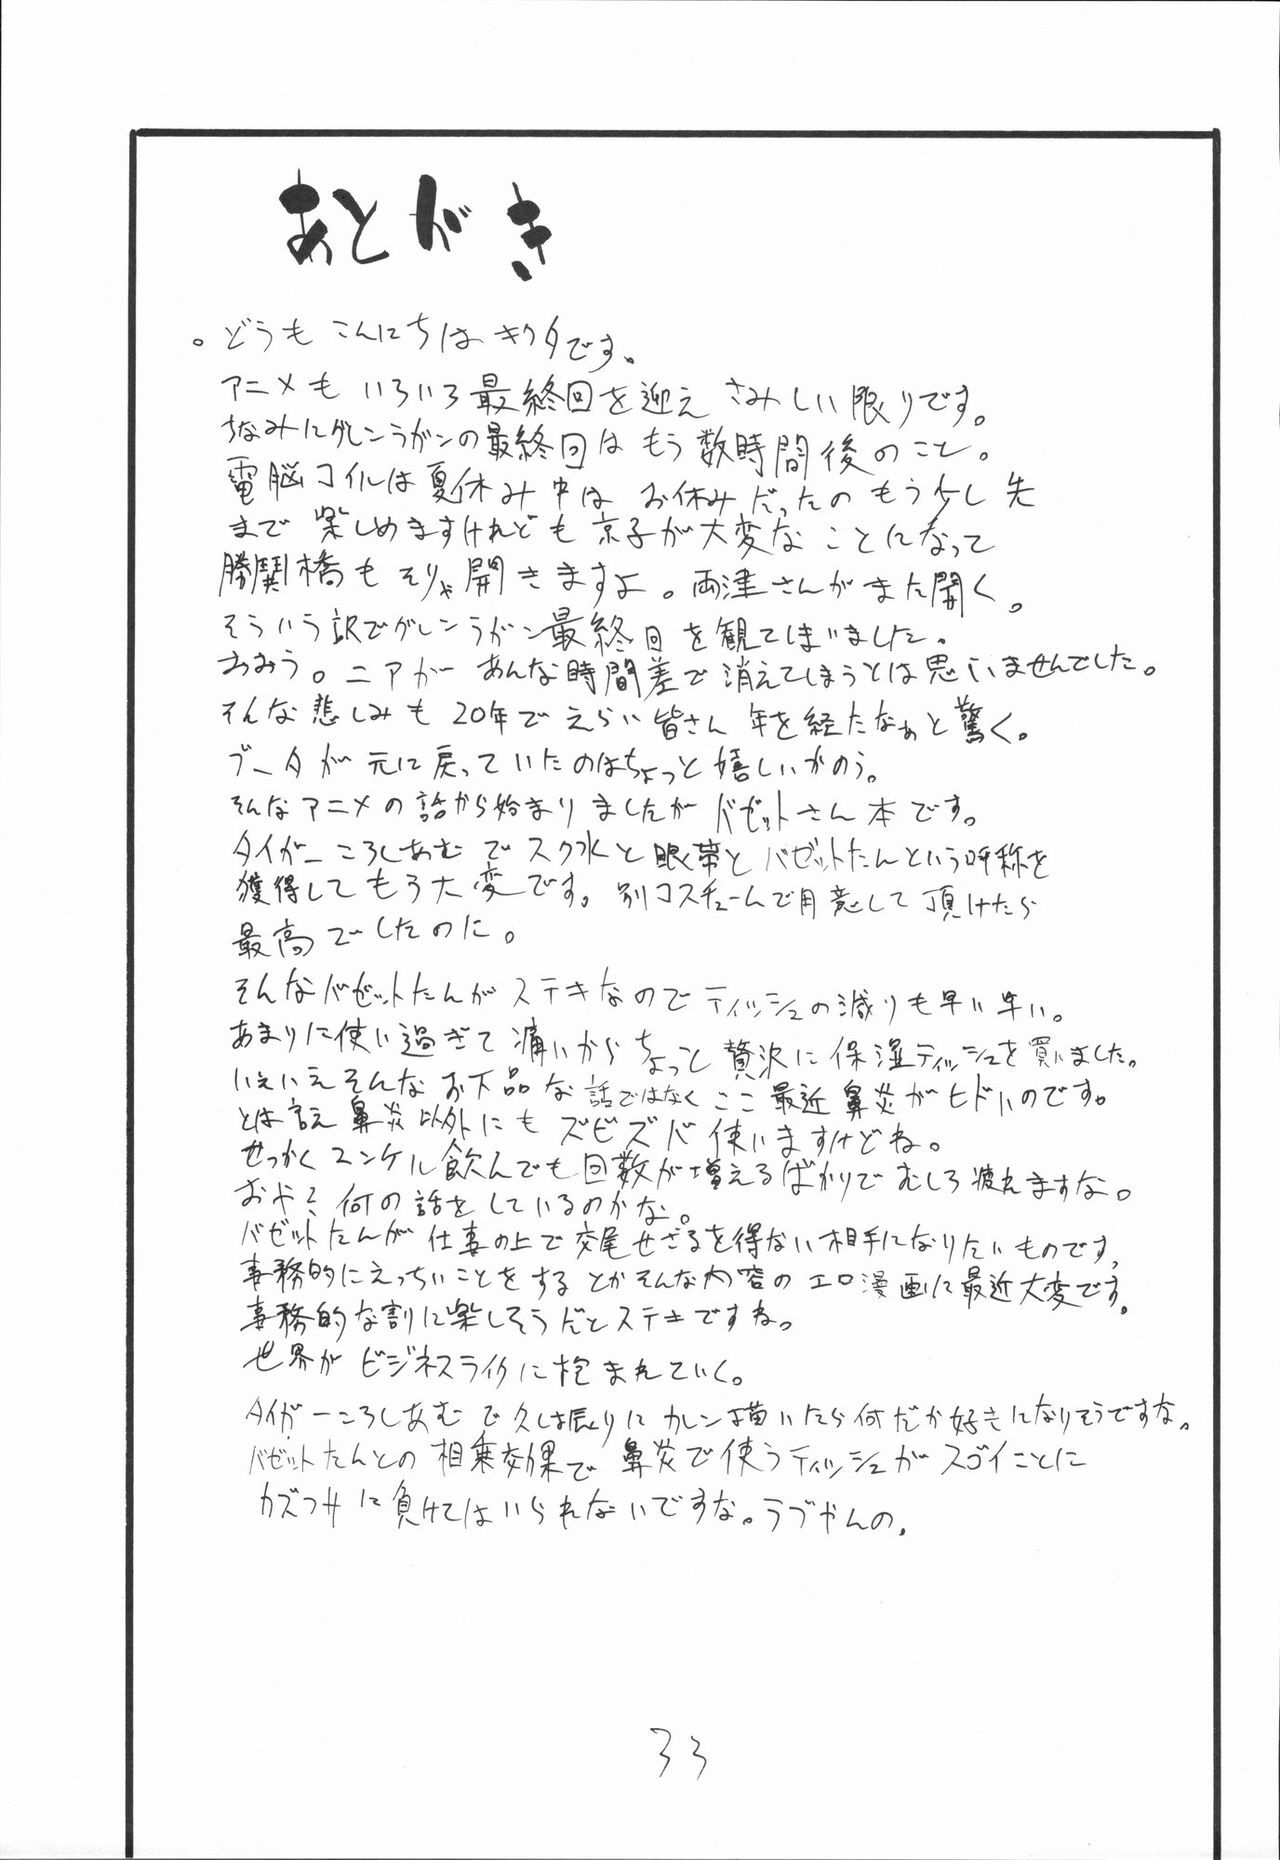 あとがき
。どうもこんにちはキクタです。
アニメもいろいろ最終回を迎えさみしい限りです。
ちなみにグレンラガンの最終回はもう数時間後のこと。
電脳コイルは夏休み中はお休みだったのもう少し先
まで楽しめますけれども京子が大変なことになって
勝鬨橋もそりゃ開きますよ。両津さんがまた開く。
そういう訳でグレンラガン最終回を観てしまいました。
おおう。ニアがあんな時間差で消えてしまうとは思いませんでした。
そんな悲しみも20年でえらい皆さん年を経たなぁと驚く。
ブータが元に戻っていたのはちょっと嬉しいかのう。
そんなアニメの話から始まりましたがバゼットさん本です。
タイガーころしあむでスク水と眼帯とバゼットたんという呼称を
獲得してもう大変です。別コスチュームで用意して頂けたら
最高でしたのに。
そんなバゼットたんがステキなのでティッシュの減りも早い早い。
あまりに使い過ぎて痛いからちょっと贅沢に保湿ティッシュを買いました。
いえいえそんなお下品な話ではなくここ最近鼻炎がヒドいのです。
とは言え鼻炎以外にもズビズバ使いますけどね。
せっかくユンケル飲んでも回数が増えるばかりでむしろ疲れますな。
おや?何の話をしているのかな。
バゼットたんが仕事の上で交尾せざるを得ない相手になりたいものです。
事務的にえっちいことをするとかそんな内容のエロ漫画に最近大変です。
事務的な割に楽しそうだとステキですね。
世界がビジネスライクに包まれていく。
タイガーころしあむで久し振りにカレン描いたら何だか好きになりそうですな。
バゼットたんとの相乗効果で鼻炎で使うティッシュがスゴイことに
カズフサに負けてはいられないですな。ラブやんの。
33